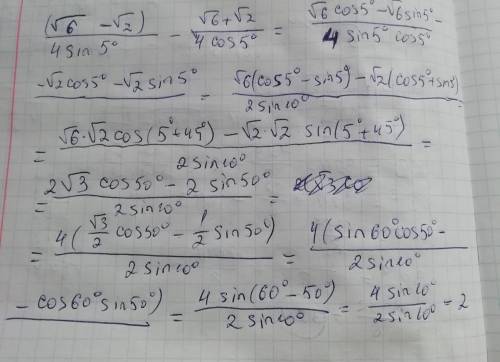 (√6 − √2)/(4 sin 5°) − (√6 + √2)/(4 cos 5°) = (√6 cos 5° − √6 sin 5° −)/(4 sin 5° cos 5°)
(−√2 cos 5° − √2 sin 5°) = (√6(cos 5° − sin 5°) − √2(cos 5° + sin 5))/(2 sin 10°)
= (√6·√2 cos(5° + 45°) − √2·√2 sin(5° + 45°))/(2 sin 10°) =
= (2√3 cos 50° − 2 sin 50°)/(2 sin 10°) =
= 4(√3/2 cos 50° − 1/2 sin 50°)/(2 sin 10°) = 4(sin 60° cos 50° −)/(2 sin 10°)
− cos 60° sin 50°) = (4 sin(60° − 50°))/(2 sin 10°) = (4 sin 10°)/(2 sin 10°) = 2